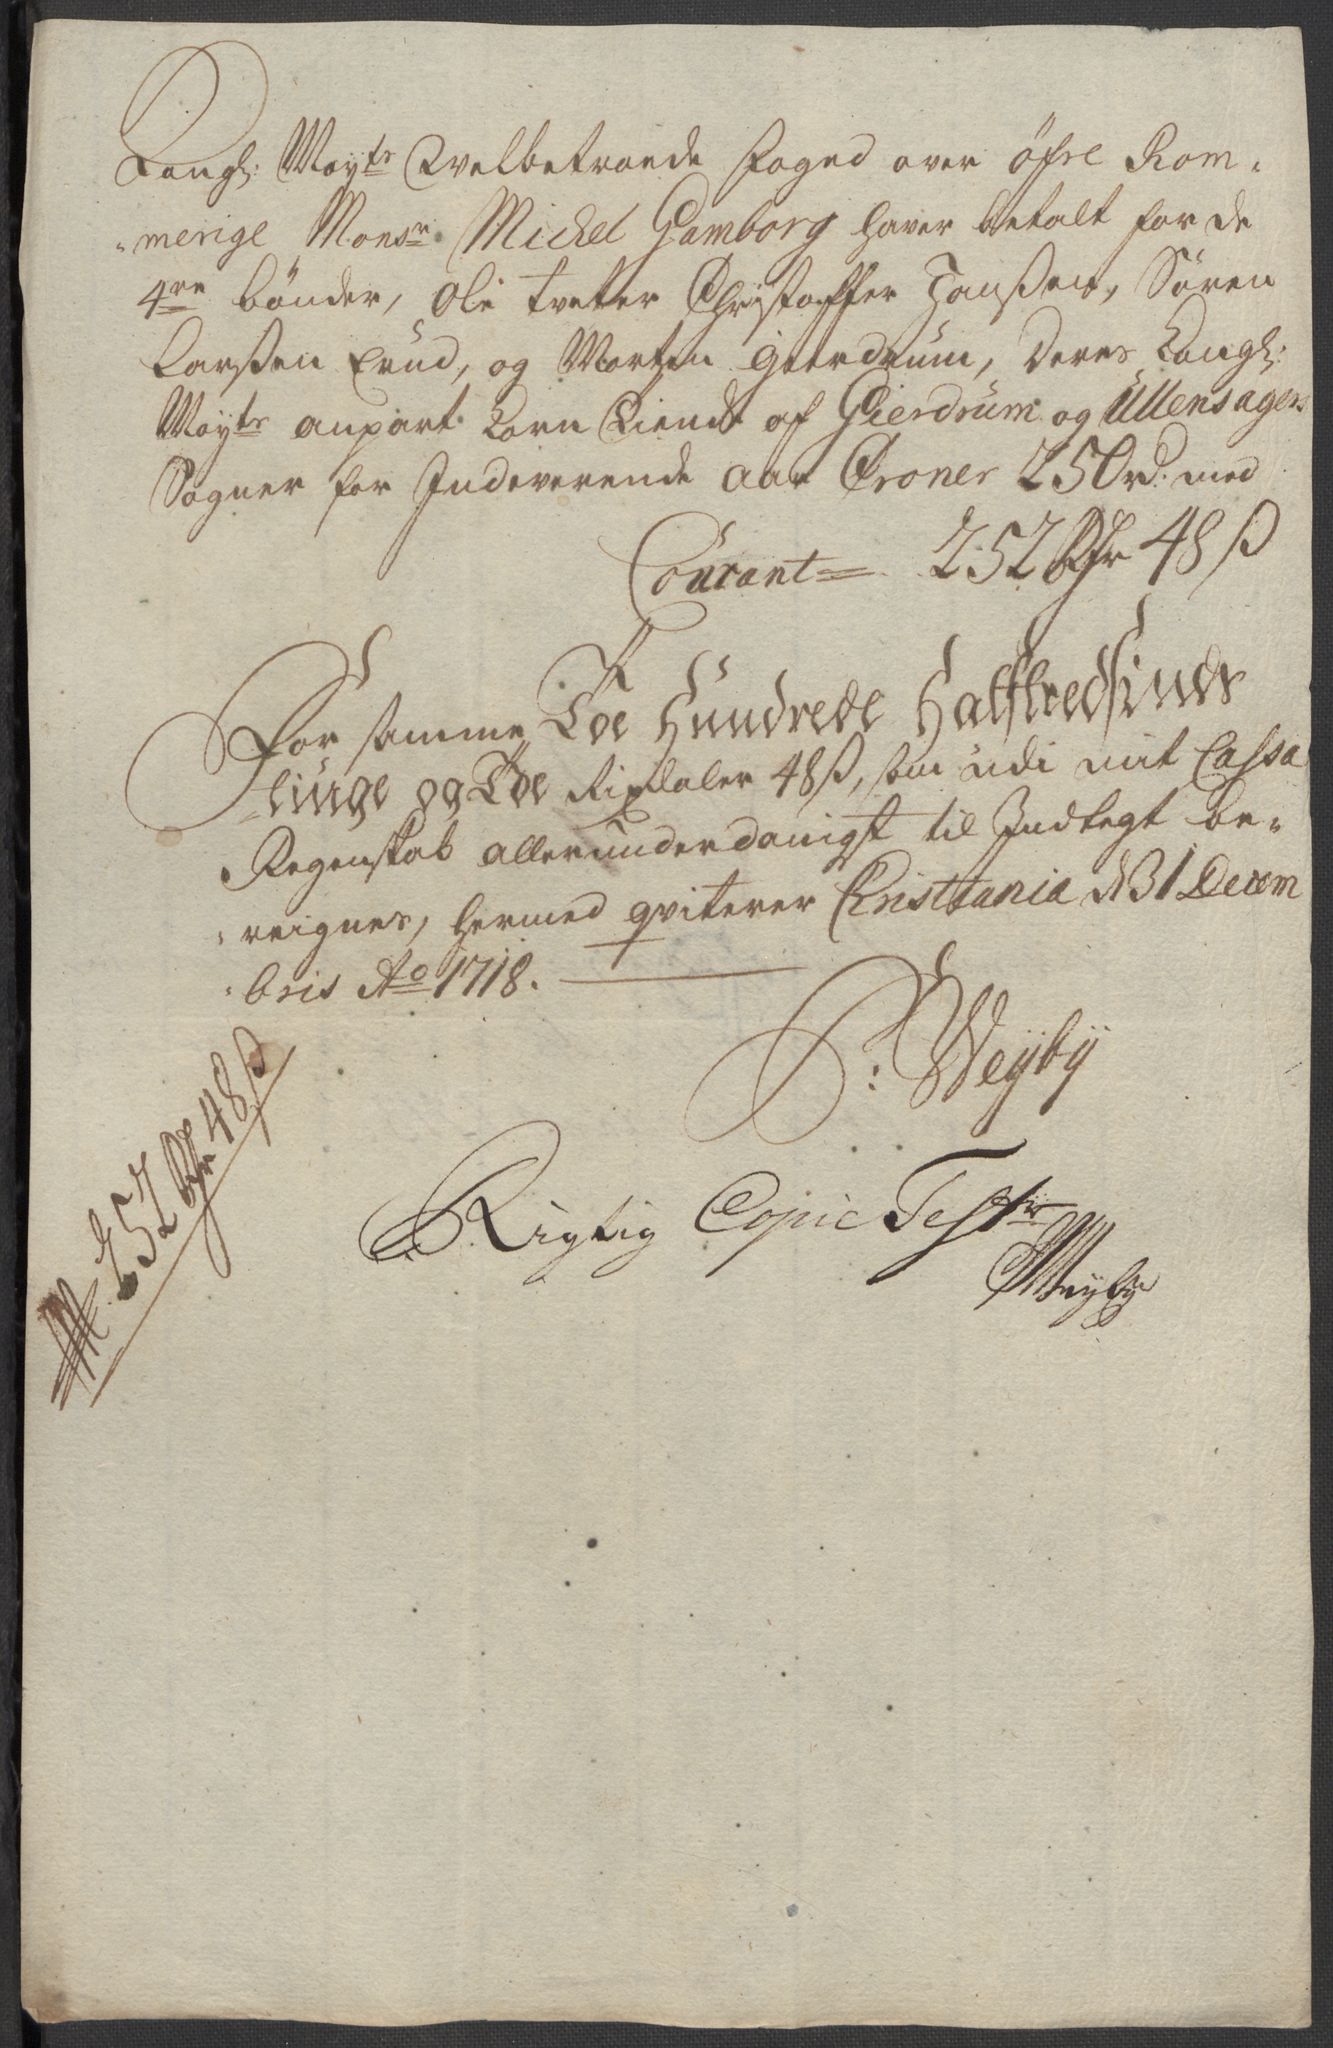 Kongl: Mayts Welbetroede foged over öfre Rom-
-merige Monsr Michel Gamborg haver betalt for de
4re bönder, Ole tveter Christoffer Hansen, Sören
Larsen Erud, og Morten Gierdrum, Deres Kongl:
Mayts anpart Korn Tiende af Gierdrum og Ullensagers
Sogner for Indeverende Aar Croner 250 rd: med
Courant = 252 Rdr 48 ß
For samme Toe Hundrede Halftredsinds
tiuge og Toe Rixdaler 48 ß, som udi mit Cassa
Regenskab allerunderdanigst til Indtegt be-
-reignes, hermed qviterer Christiania d 31 Decem
-bris Ao 1718.
P: Weyby
252 Rdr 48 ß
Rigtig Copie Testr
PWeyby